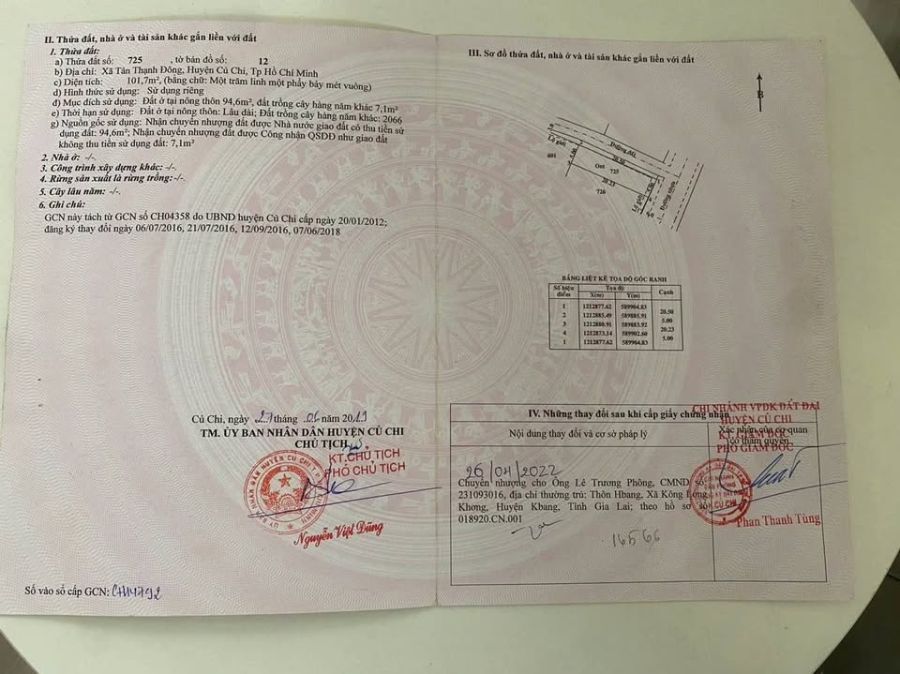 II. Thửa đất, nhà ở và tài sản khác gắn liền với đất
1. Thửa đất:
a) Thửa đất số: 725 , tờ bản đồ số: 12
b) Địa chỉ: Xã Tân Thạnh Đông, Huyện Củ Chi, Tp Hồ Chí Minh
c) Diện tích: 101,7m², (bằng chữ: Một trăm linh một phẩy bảy mét vuông)
d) Hình thức sử dụng: Sử dụng riêng
đ) Mục đích sử dụng: Đất ở tại nông thôn 94,6m², đất trồng cây hàng năm khác 7,1m²
e) Thời hạn sử dụng: Đất ở tại nông thôn: Lâu dài; Đất trồng cây hàng năm khác: 2066
g) Nguồn gốc sử dụng: Nhận chuyển nhượng đất được Nhà nước giao đất có thu tiền sử
dụng đất: 94,6m²; Nhận chuyển nhượng đất được Công nhận QSDĐ như giao đất
không thu tiền sử dụng đất: 7,1m²
2. Nhà ở: -/-.
3. Công trình xây dựng khác: -/-.
4. Rừng sản xuất là rừng trồng: -/-.
5. Cây lâu năm: -/-.
6. Ghi chú:
GCN này tách từ GCN số CH04358 do UBND huyện Củ Chi cấp ngày 20/01/2012;
đăng ký thay đổi ngày 06/07/2016, 21/07/2016, 12/09/2016, 07/06/2018
Củ Chi, ngày 27 tháng 06 năm 2019
TM. ỦY BAN NHÂN DÂN HUYỆN CỦ CHI
CHỦ TỊCH
KT.CHỦ TỊCH
PHÓ CHỦ TỊCH
Nguyễn Việt Dũng
Số vào sổ cấp GCN:
III. Sơ đồ thửa đất, nhà ở và tài sản khác gắn liền với đất
B
Đường đất
Lộ giới
601
5.00
20.50
Ont
725
20.23
726
5.00
Lộ giới
Đường nhựa
BẢNG LIỆT KÊ TỌA ĐỘ GÓC RANH
Số hiệu điểm Tọa độ Cạnh
X(m) Y(m)
1 1212877.62 589904.83
20.50
2 1212885.49 589885.91
5.00
3 1212880.91 589883.92
20.23
4 1212873.14 589902.60
5.00
1 1212877.62 589904.83
IV. Những thay đổi sau khi cấp giấy chứng nhận
Nội dung thay đổi và cơ sở pháp lý
Xác nhận của cơ quan
có thẩm quyền
CHI NHÁNH VPĐK ĐẤT ĐAI
HUYỆN CỦ CHI
KT. GIÁM ĐỐC
PHÓ GIÁM ĐỐC
26/04/2022
Chuyển nhượng cho Ông Lê Trương Phông, CMND số
231093016, địa chỉ thường trú: Thôn Hbang, Xã Kông Lơng
Khơng, Huyện Kbang, Tỉnh Gia Lai; theo hồ sơ số
018920.CN.001
Phan Thanh Tùng